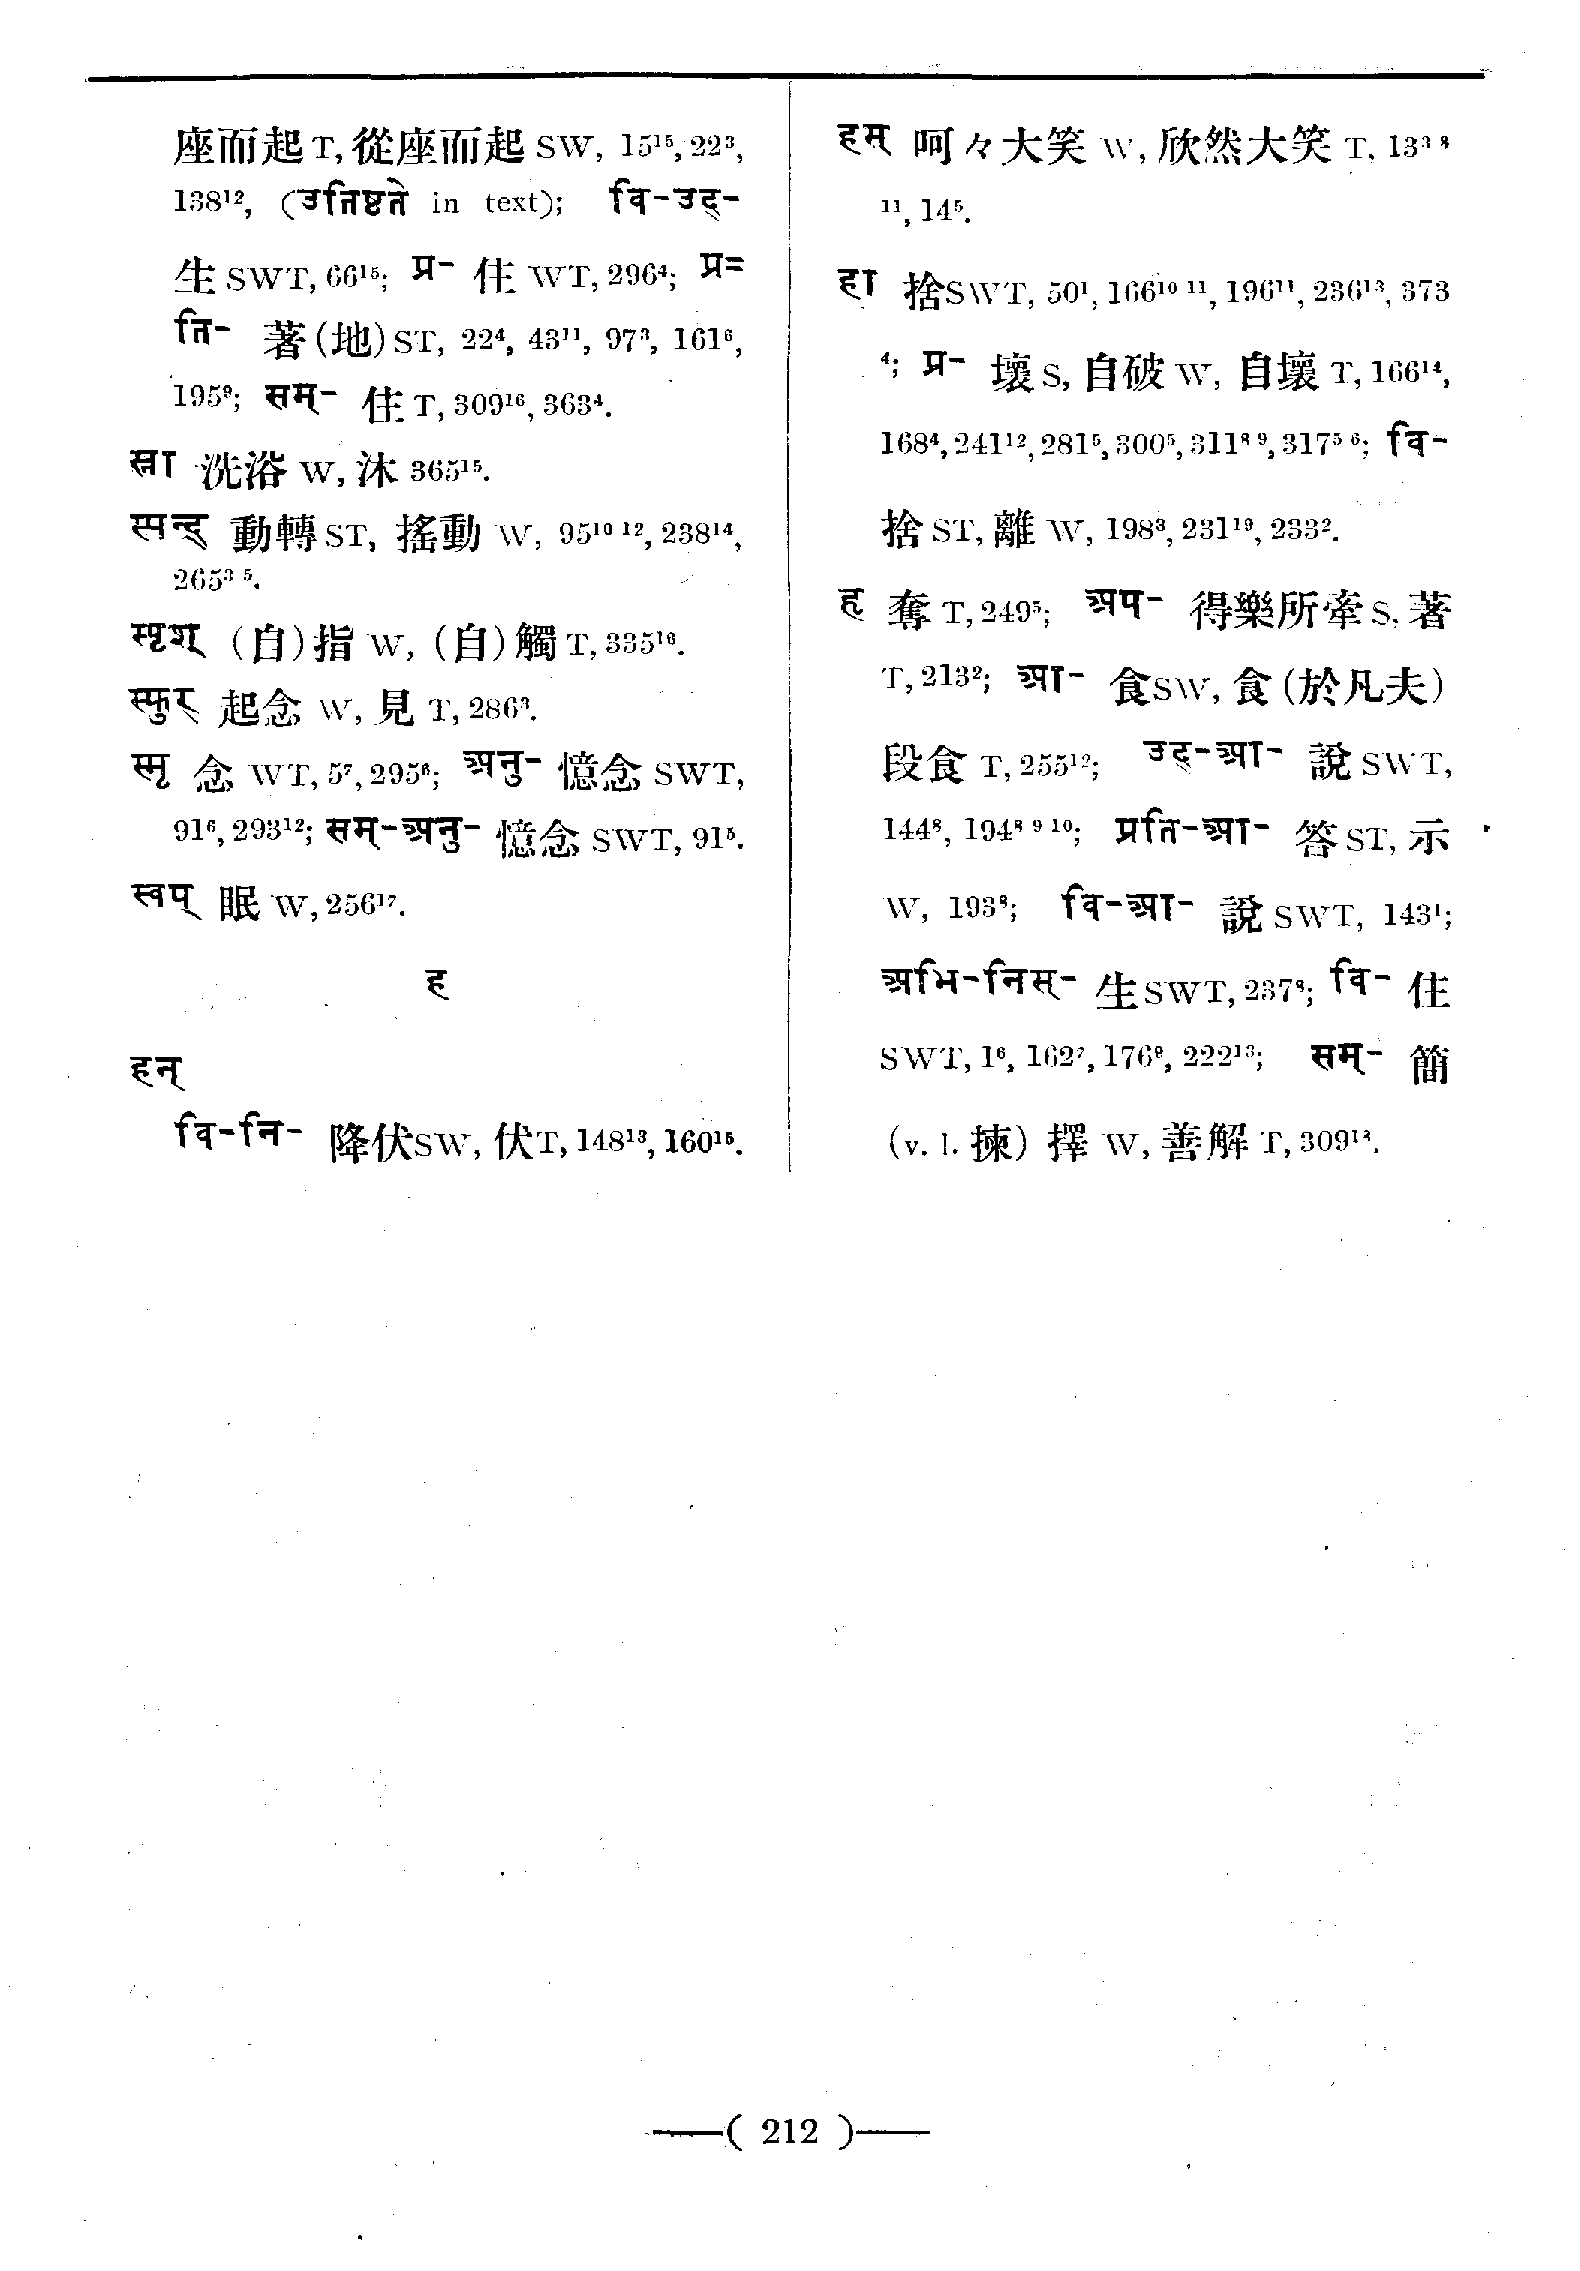 座而起 T, 從座而起 SW, 15¹⁵, 22³,
138¹², (उतिष्टते in text); वि-उद्-
生 SWT, 66¹⁵; प्र- 住 WT, 296⁴; प्र=
ति- 著(地) ST, 22⁴, 43¹¹, 97³, 161⁶,
195⁹; सम्- 住 T, 309¹⁶, 363⁴.
स्ना 洗浴 W, 沐 365¹⁵.
स्पन्द् 動轉 ST, 搖動 W, 95¹⁰ ¹², 238¹⁴,
265³ ⁵.
स्पृश् (自)指 W, (自)觸 T, 335¹⁶.
स्फुर् 起念 W, 見 T, 286³.
स्मृ 念 WT, 5⁷, 295⁶; अनु- 憶念 SWT,
91⁶, 293¹²; सम्-अनु- 憶念 SWT, 91⁵.
स्वप् 眠 W, 256¹⁷.
ह
हन्
वि-नि- 降伏 SW, 伏 T, 148¹³, 160¹⁵.
हस् 呵々大笑 W, 欣然大笑 T, 13³ ⁸
¹¹, 14⁵.
हा 捨 SWT, 50¹, 166¹⁰ ¹¹, 196¹¹, 236¹³, 373
⁴; प्र- 壞 S, 自破 W, 自壞 T, 166¹⁴,
168⁴, 241¹², 281⁵, 300⁵, 311⁸ ⁹, 317⁵ ⁶; वि-
捨 ST, 離 W, 198³, 231¹⁹, 233².
हृ 奪 T, 249⁵; अप- 得樂所牽 S, 著
T, 213²; आ- 食 SW, 食(於凡夫)
段食 T, 255¹²; उद्-आ- 說 SWT,
144⁸, 194⁸ ⁹ ¹⁰; प्रति-आ- 答 ST, 示
W, 193⁸; वि-आ- 說 SWT, 143¹;
अभि-निस्- 生 SWT, 237⁸; वि- 住
SWT, 1⁶, 162⁷, 176⁹, 222¹³; सम्- 簡
(v. l. 揀) 擇 W, 善解 T, 309¹³.
( 212 )